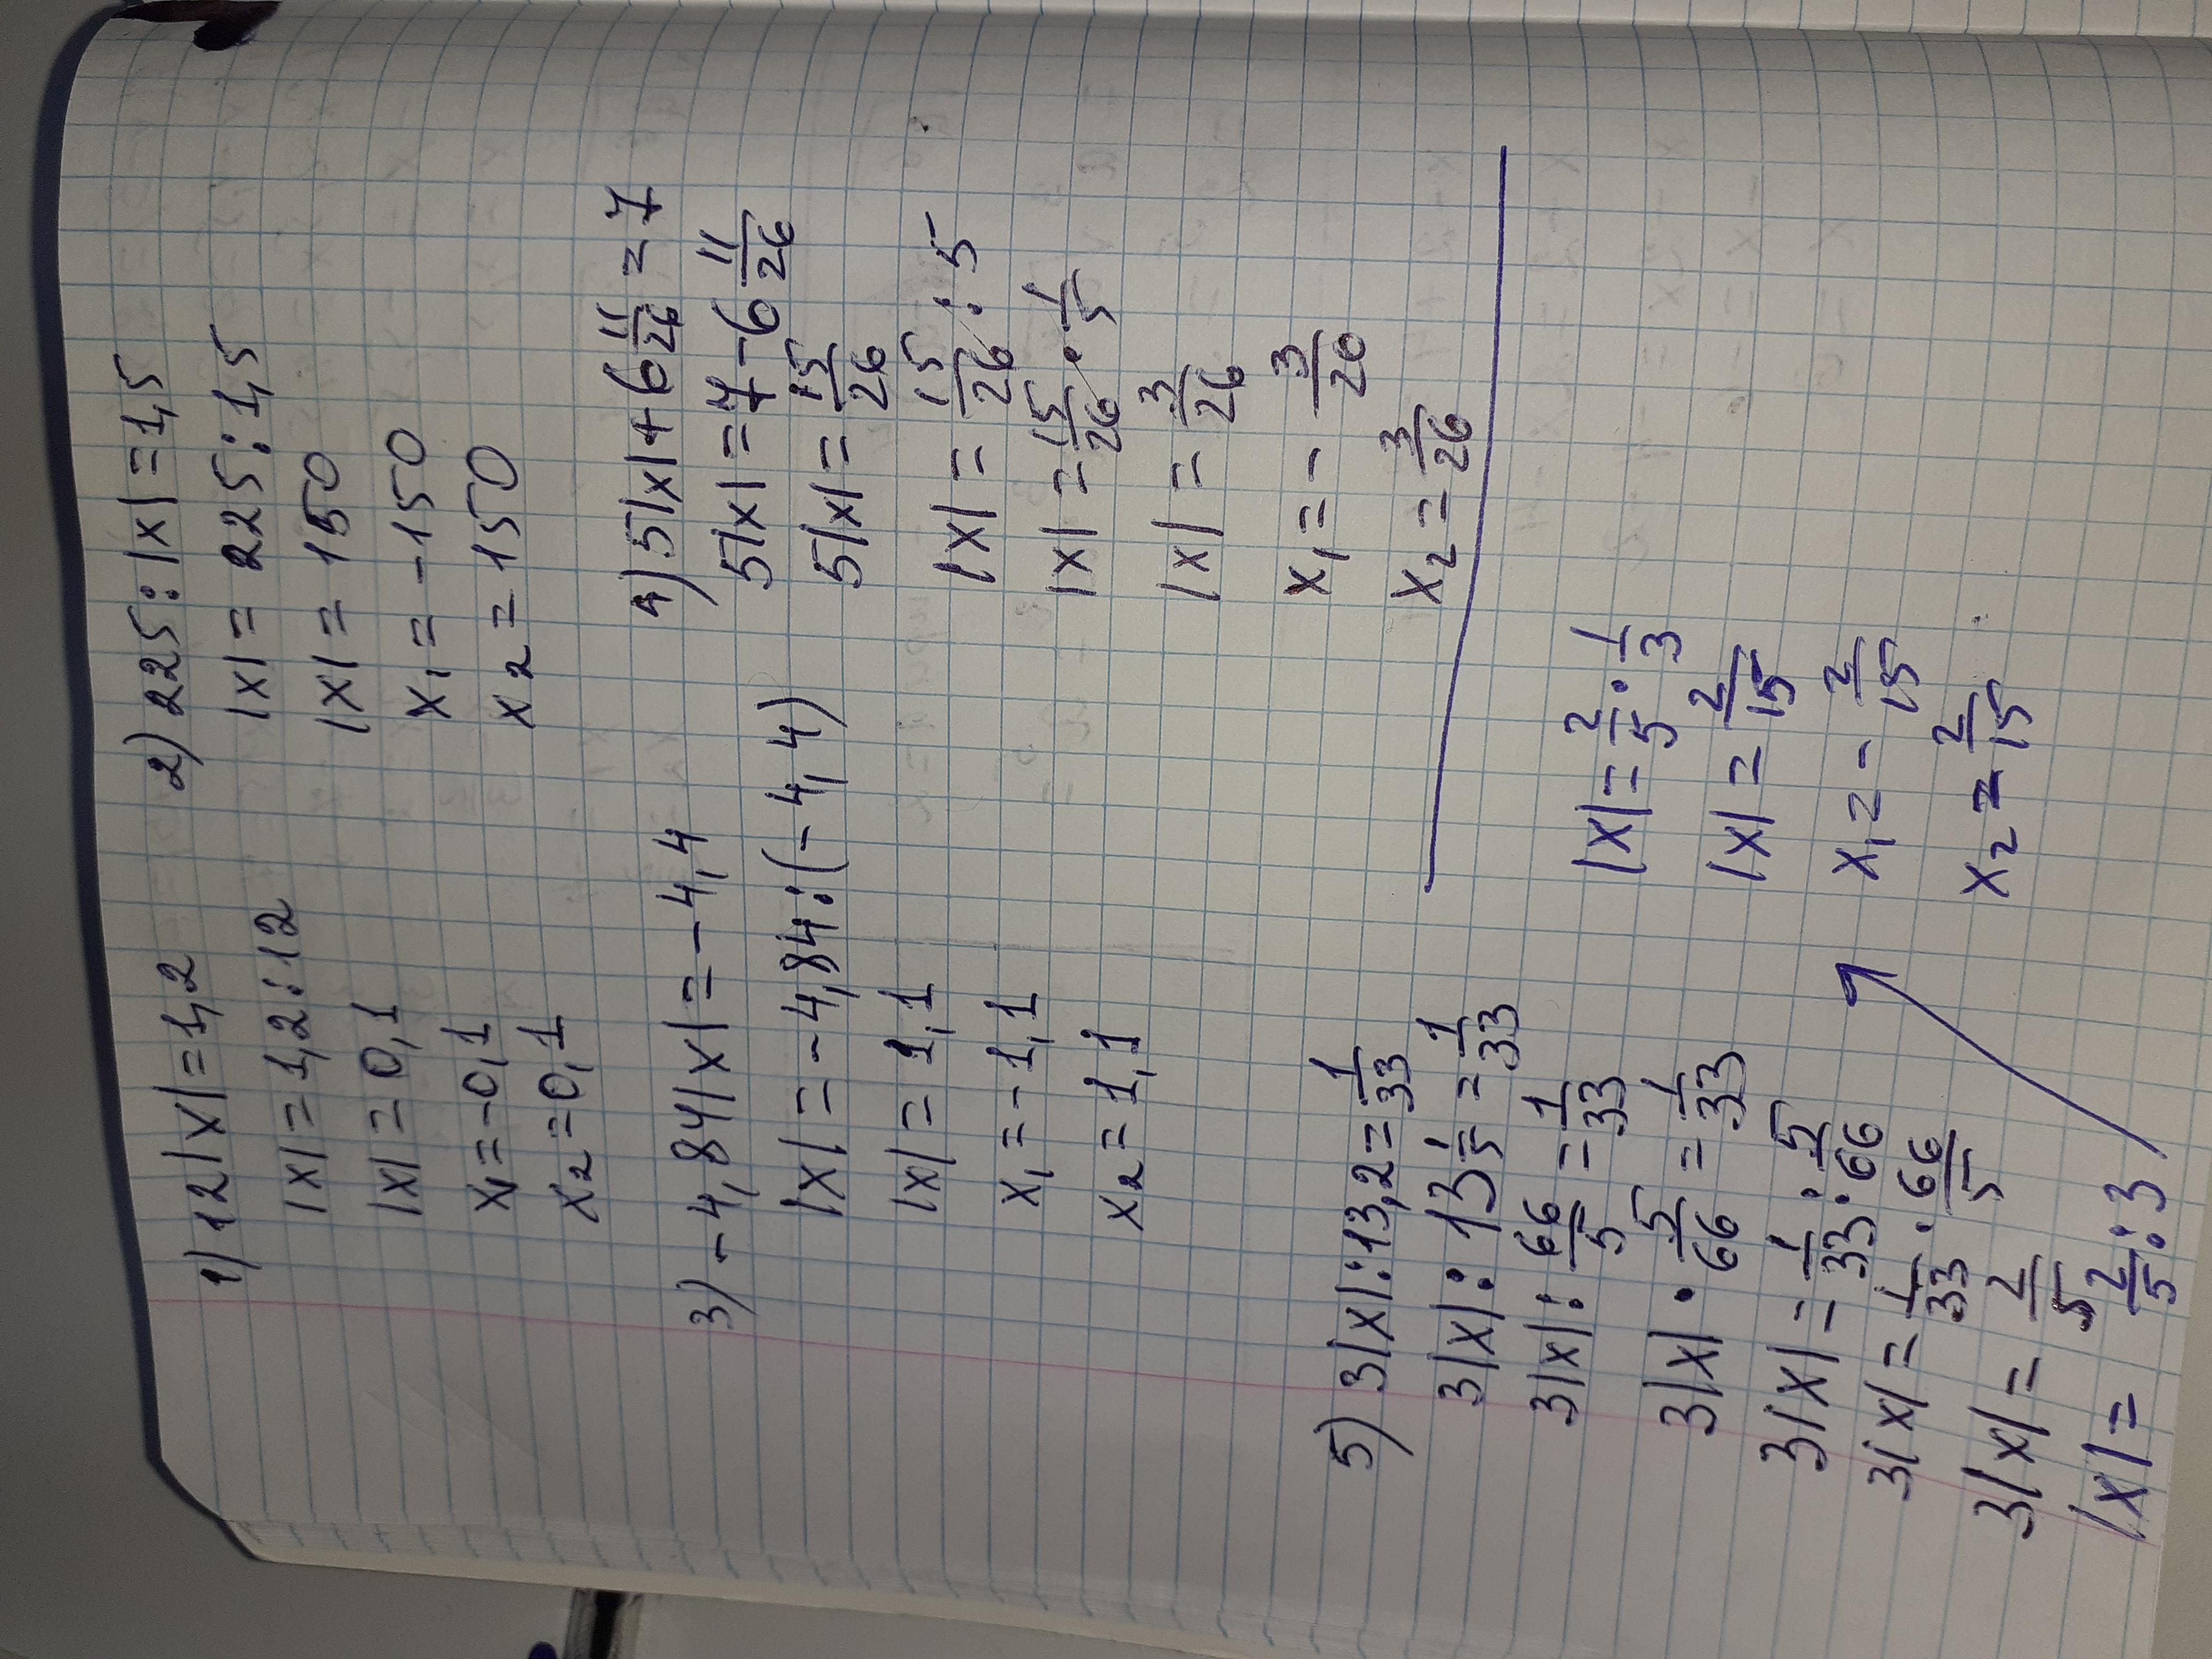 1) 12|x|=1,2
|x|=1,2:12
|x|=0,1
x₁=-0,1
x₂=0,1
2) 225:|x|=1,5
|x|=225:1,5
|x|=150
x₁=-150
x₂=150
3) -4,84|x|=-4,4
|x|=-4,84:(-4,4)
|x|=1,1
x₁=-1,1
x₂=1,1
4) 5|x|+6 11/26=7
5|x|=7-6 11/26
5|x|=15/26
|x|=15/26:5
|x|=15/26·1/5
|x|=3/26
x₁=-3/20
x₂=3/26
5) 3|x|:13,2=1/33
3|x|:13 1/5=1/33
3|x|:66/5=1/33
3|x|·5/66=1/33
3|x|=1/33:5/66
3|x|=1/33·66/5
3|x|=2/5
|x|=2/5:3
|x|=2/5·1/3
|x|=2/15
x₁=-2/15
x₂=2/15